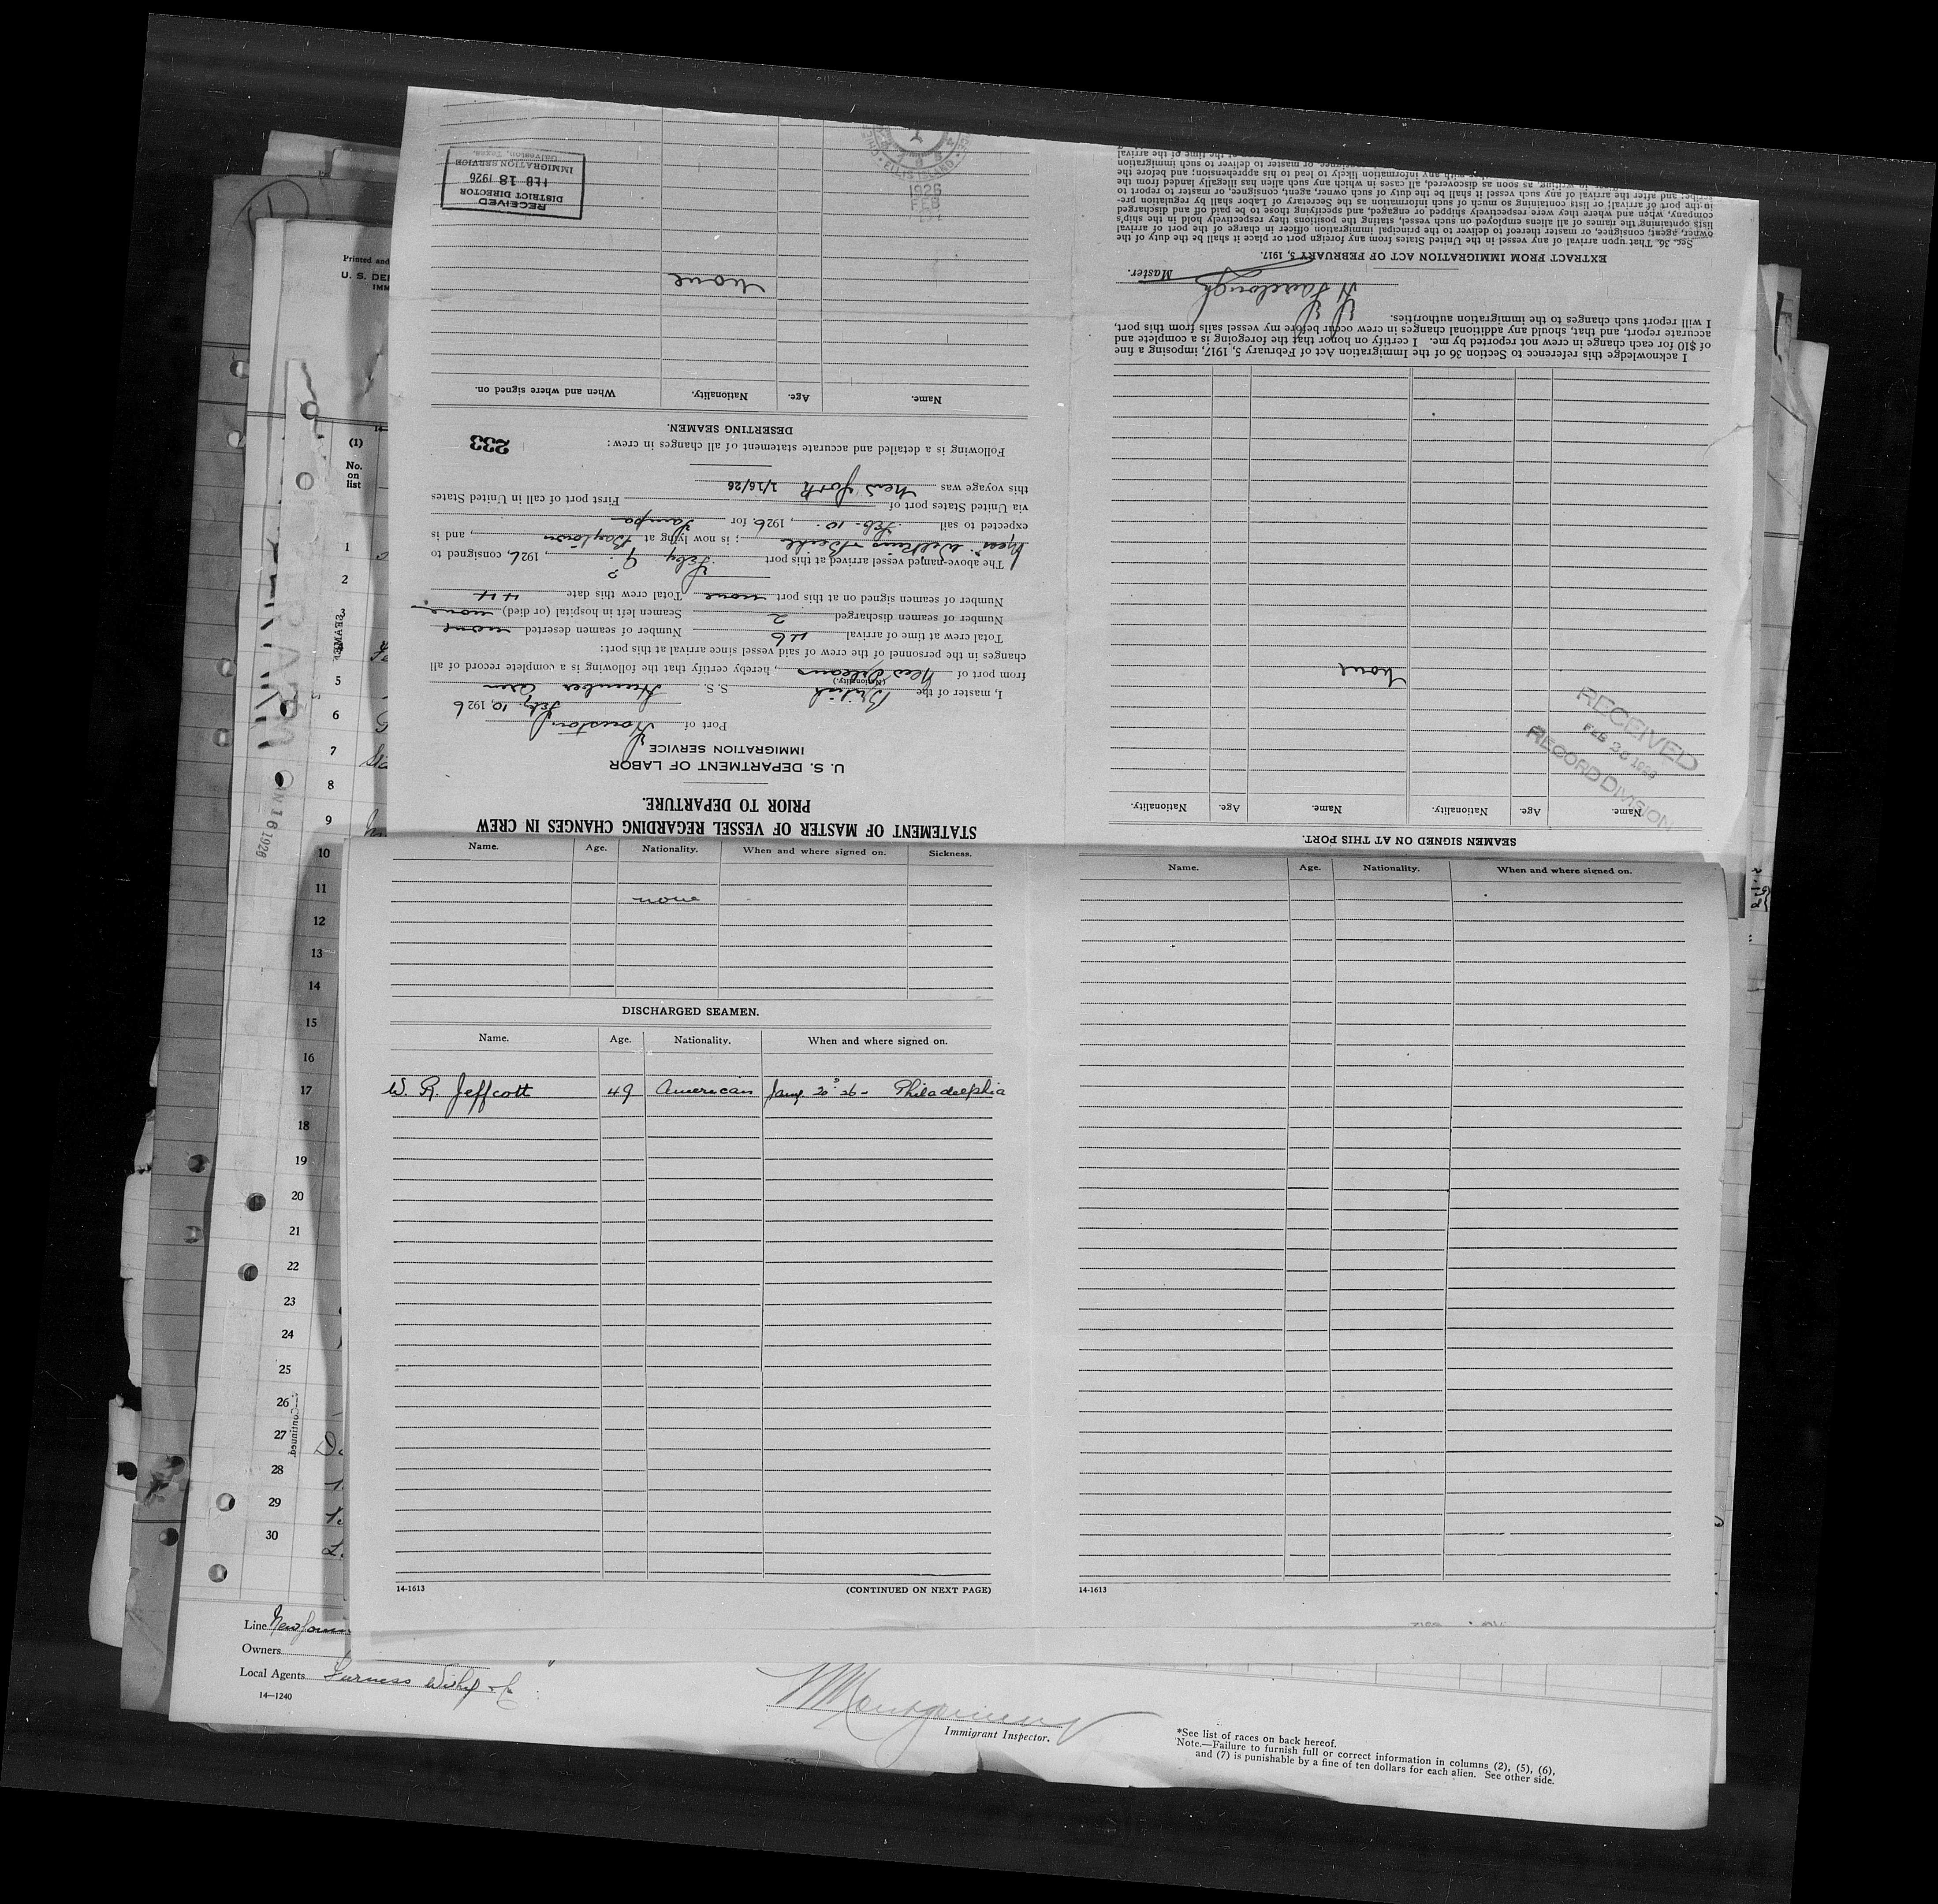 STATEMENT OF MASTER OF VESSEL REGARDING CHANGES IN CREW
PRIOR TO DEPARTURE.
U. S. DEPARTMENT OF LABOR
IMMIGRATION SERVICE
Port of Houston
Feby. 10, 1926
I, master of the British S. S. Humber Arm
(Nationality.)
from port of New Orleans, hereby certify that the following is a complete record of all
changes in the personnel of the crew of said vessel since arrival at this port:
Total crew at time of arrival 46 Number of seamen deserted none
Number of seamen discharged 2 Seamen left in hospital (or died) none
Number of seamen signed on at this port none Total crew this date 44
The above-named vessel arrived at this port Feby 9, 1926, consigned to
; is now lying at Baytown, and is
expected to sail Feb. 10., 1926, for Tampa
via United States port of First port of call in United States
this voyage was New York 1/16/26
Following is a detailed and accurate statement of all changes in crew:
233
DESERTING SEAMEN.
Name. Age. Nationality. When and where signed on.
None
RECEIVED
DISTRICT DIRECTOR
FEB 18 1926
IMMIGRATION SERVICE
Galveston, Texas.
ELLIS ISLAND
1926
FEB
Name. Age. Nationality. When and where signed on. Sickness.
none
DISCHARGED SEAMEN.
Name. Age. Nationality. When and where signed on.
W. R. Jeffcott 49 American Jany. 20 26 - Philadelphia
14-1613 (CONTINUED ON NEXT PAGE)
Name. Age. Nationality. When and where signed on.
14-1613
SEAMEN SIGNED ON AT THIS PORT.
Name. Age. Nationality. Name. Age. Nationality.
None
RECEIVED
FEB
RECORD DIVISION
I acknowledge this reference to Section 36 of the Immigration Act of February 5, 1917, imposing a fine
of $10 for each change in crew not reported by me. I certify on honor that the foregoing is a complete and
accurate report, and that, should any additional changes in crew occur before my vessel sails from this port,
I will report such changes to the immigration authorities.
Master.
EXTRACT FROM IMMIGRATION ACT OF FEBRUARY 5, 1917.
Sec. 36. That upon arrival of any vessel in the United States from any foreign port or place it shall be the duty of the
owner, agent, consignee, or master thereof to deliver to the principal immigration officer in charge of the port of arrival
lists containing the names of all aliens employed on such vessel, stating the positions they respectively hold in the ship's
company, when and where they were respectively shipped or engaged, and specifying those to be paid off and discharged
in the port of arrival; or lists containing so much of such information as the Secretary of Labor shall by regulation pre-
scribe; and after the arrival of any such vessel it shall be the duty of such owner, agent, consignee, or master to report to
in writing, as soon as discovered, all cases in which any such alien has illegally landed from the
with any information likely to lead to his apprehension; and before the
or master to deliver to such immigration
at the time of the arrival
Printed and
U. S. DE
IMM
(1)
No.
on
list
1
2
3
5
6
7
8
9
10
11
12
13
14
15
16
17
18
19
20
21
22
23
24
25
26
27
28
29
30
Continued
Line
Owners
Local Agents Furness Withy & Co
14—1240
Montgomery
Immigrant Inspector.
*See list of races on back hereof.
Note.—Failure to furnish full or correct information in columns (2), (5), (6),
and (7) is punishable by a fine of ten dollars for each alien. See other side.